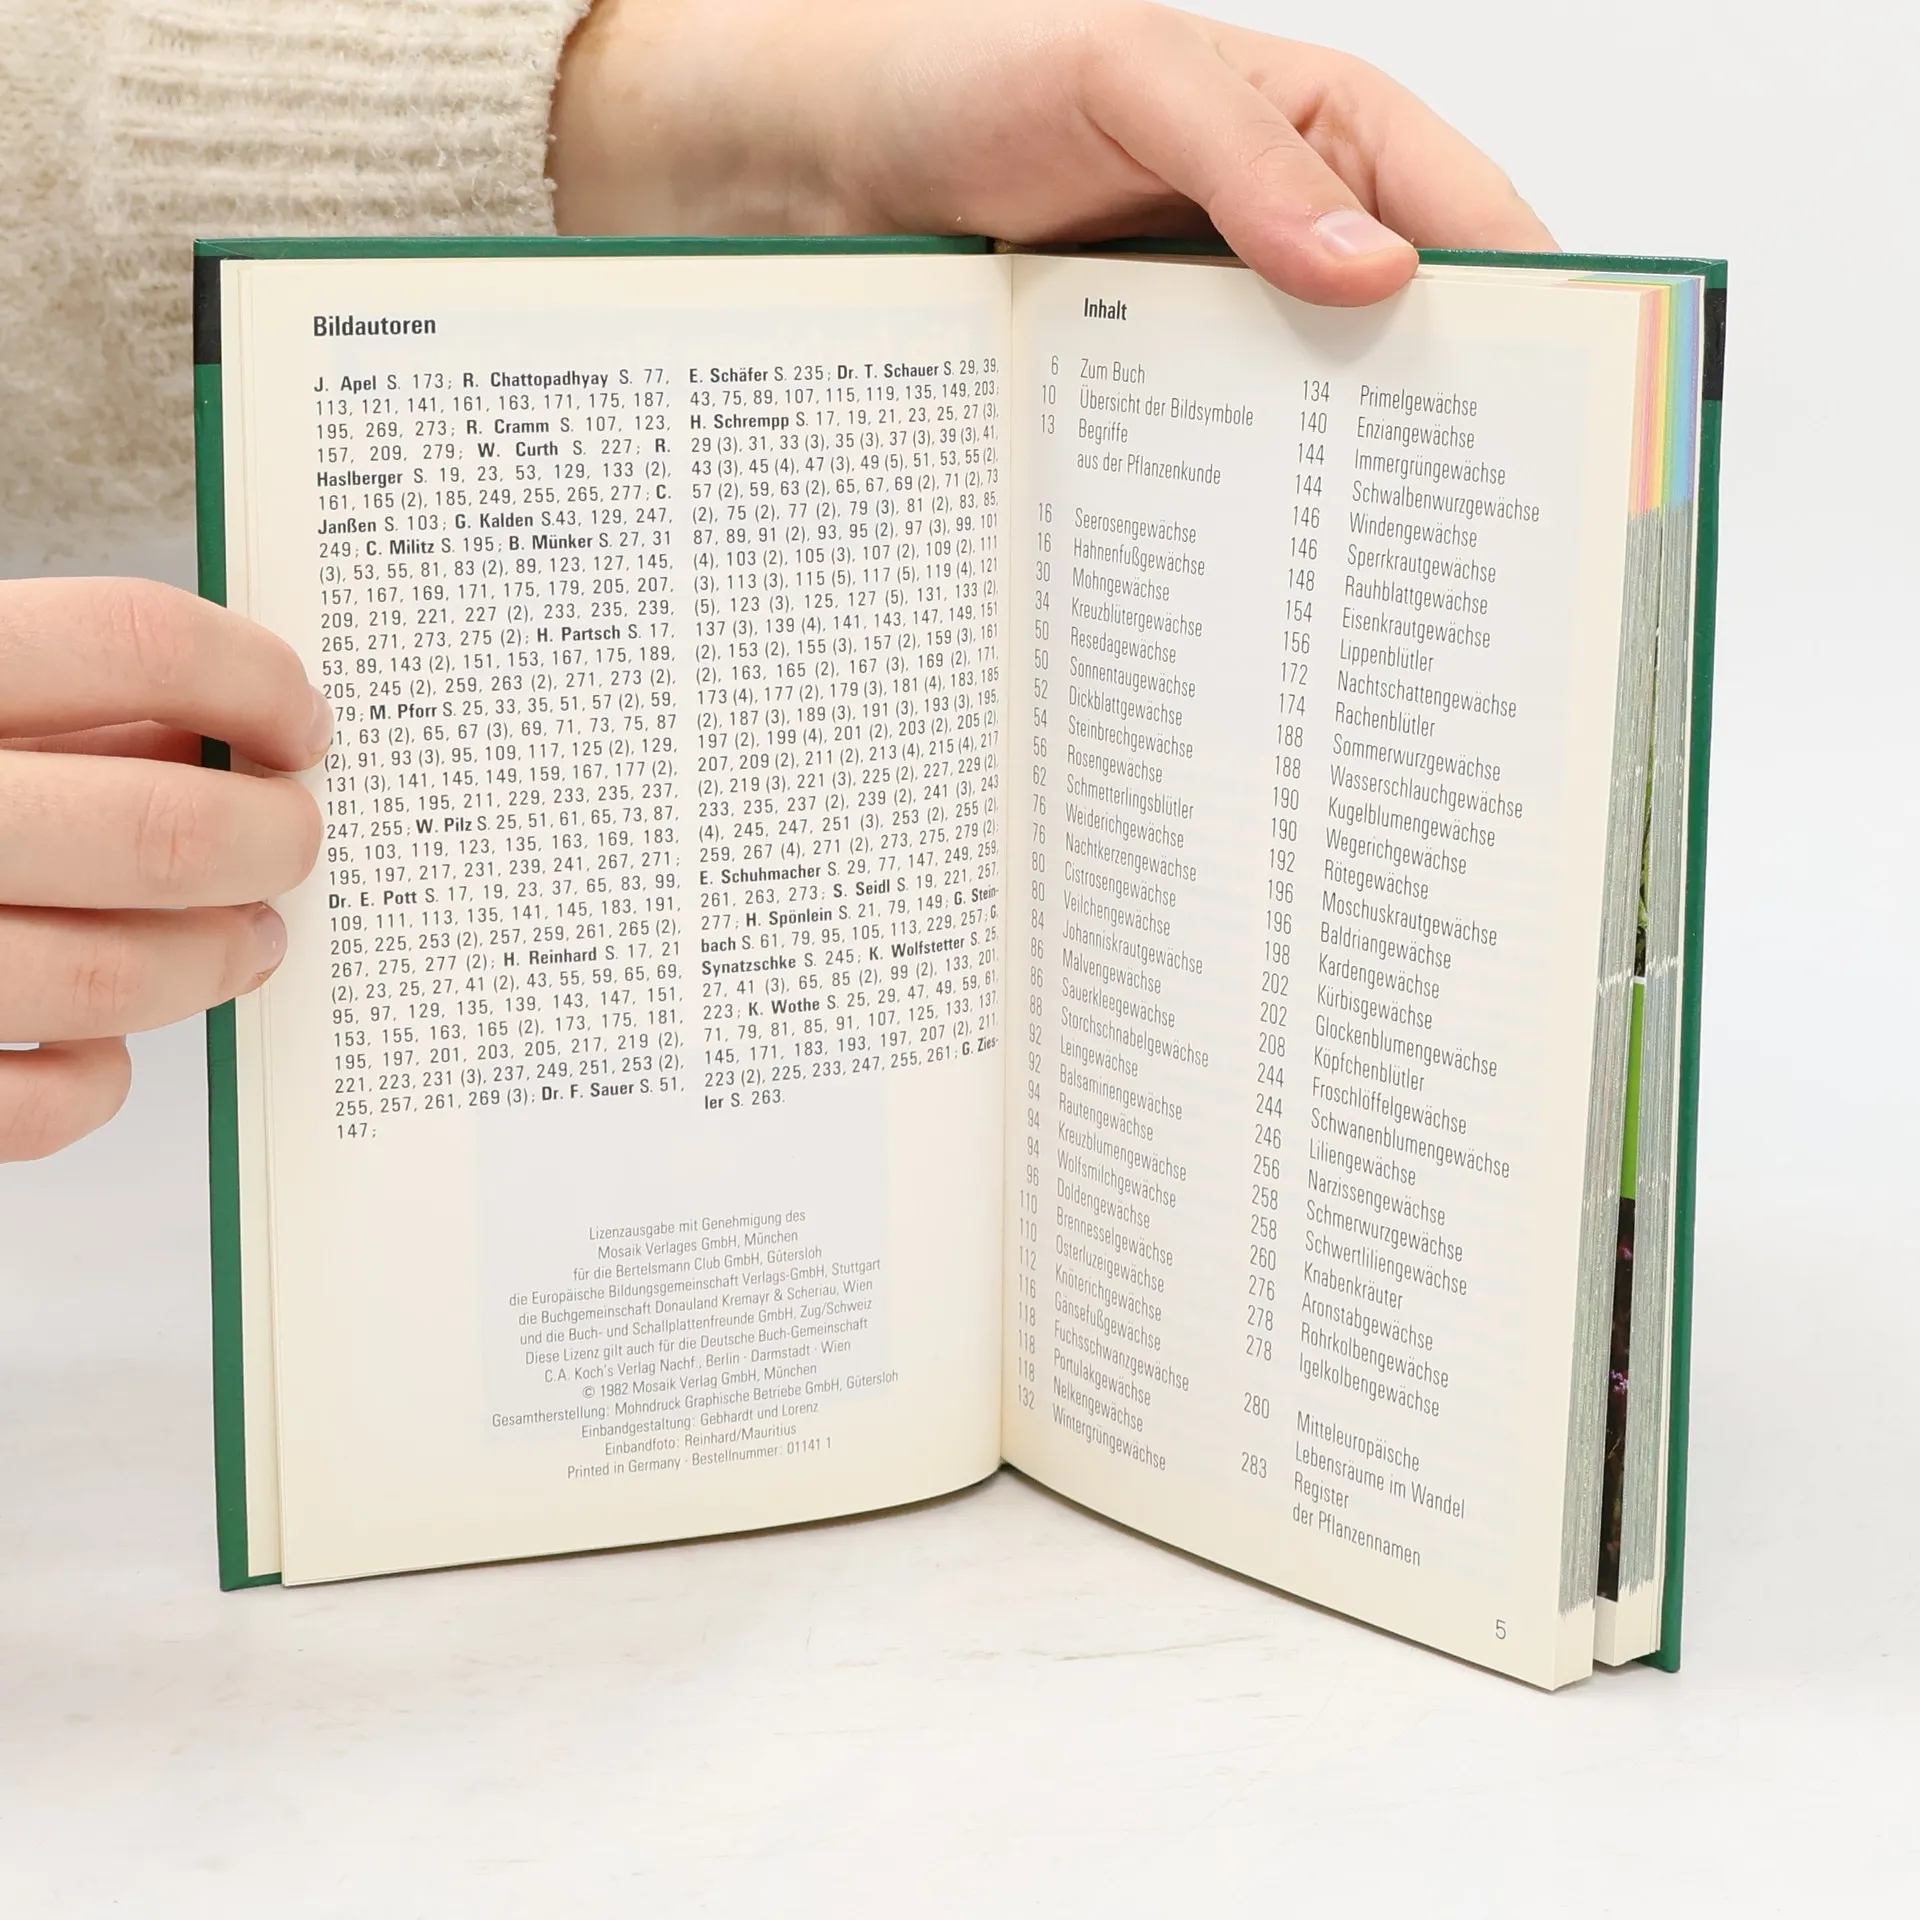 Bildautoren
J. Apel S. 173; R. Chattopadhyay S. 77,
113, 121, 141, 161, 163, 171, 175, 187,
195, 269, 273; R. Cramm S. 107, 123,
157, 209, 279; W. Curth S. 227; R.
Haslberger S. 19, 23, 53, 129, 133 (2),
161, 165 (2), 185, 249, 255, 265, 277; C.
Janßen S. 103; G. Kalden S.43, 129, 247,
249; C. Militz S. 195; B. Münker S. 27, 31
(3), 53, 55, 81, 83 (2), 89, 123, 127, 145,
157, 167, 169, 171, 175, 179, 205, 207,
209, 219, 221, 227 (2), 233, 235, 239,
265, 271, 273, 275 (2); H. Partsch S. 17,
53, 89, 143 (2), 151, 153, 167, 175, 189,
205, 245 (2), 259, 263 (2), 271, 273 (2),
79; M. Pforr S. 25, 33, 35, 51, 57 (2), 59,
1, 63 (2), 65, 67 (3), 69, 71, 73, 75, 87
(2), 91, 93 (3), 95, 109, 117, 125 (2), 129,
131 (3), 141, 145, 149, 159, 167, 177 (2),
181, 185, 195, 211, 229, 233, 235, 237,
247, 255; W. Pilz S. 25, 51, 61, 65, 73, 87,
95, 103, 119, 123, 135, 163, 169, 183,
195, 197, 217, 231, 239, 241, 267, 271;
Dr. E. Pott S. 17, 19, 23, 37, 65, 83, 99,
109, 111, 113, 135, 141, 145, 183, 191,
205, 225, 253 (2), 257, 259, 261, 265 (2),
267, 275, 277 (2); H. Reinhard S. 17, 21
(2), 23, 25, 27, 41 (2), 43, 55, 59, 65, 69,
95, 97, 129, 135, 139, 143, 147, 151,
153, 155, 163, 165 (2), 173, 175, 181,
195, 197, 201, 203, 205, 217, 219 (2),
221, 223, 231 (3), 237, 249, 251, 253 (2),
255, 257, 261, 269 (3); Dr. F. Sauer S. 51,
147;
E. Schäfer S. 235; Dr. T. Schauer S. 29, 39,
43, 75, 89, 107, 115, 119, 135, 149, 203;
H. Schrempp S. 17, 19, 21, 23, 25, 27 (3),
29 (3), 31, 33 (3), 35 (3), 37 (3), 39 (3), 41,
43 (3), 45 (4), 47 (3), 49 (5), 51, 53, 55 (2),
57 (2), 59, 63 (2), 65, 67, 69 (2), 71 (2), 73
(2), 75 (2), 77 (2), 79 (3), 81 (2), 83, 85,
87, 89, 91 (2), 93, 95 (2), 97 (3), 99, 101
(4), 103 (2), 105 (3), 107 (2), 109 (2), 111
(3), 113 (3), 115 (5), 117 (5), 119 (4), 121
(5), 123 (3), 125, 127 (5), 131, 133 (2),
137 (3), 139 (4), 141, 143, 147, 149, 151
(2), 153 (2), 155 (3), 157 (2), 159 (3), 161
(2), 163, 165 (2), 167 (3), 169 (2), 171,
173 (4), 177 (2), 179 (3), 181 (4), 183, 185
(2), 187 (3), 189 (3), 191 (3), 193 (3), 195,
197 (2), 199 (4), 201 (2), 203 (2), 205 (2),
207, 209 (2), 211 (2), 213 (4), 215 (4), 217
(2), 219 (3), 221 (3), 225 (2), 227, 229 (2),
233, 235, 237 (2), 239 (2), 241 (3), 243
(4), 245, 247, 251 (3), 253 (2), 255 (2),
259, 267 (4), 271 (2), 273, 275, 279 (2);
E. Schuhmacher S. 29, 77, 147, 249, 259,
261, 263, 273; S. Seidl S. 19, 221, 257,
277; H. Spönlein S. 21, 79, 149; G. Stein-
bach S. 61, 79, 95, 105, 113, 229, 257; G.
Synatzschke S. 245; K. Wolfstetter S. 25,
27, 41 (3), 65, 85 (2), 99 (2), 133, 201,
223; K. Wothe S. 25, 29, 47, 49, 59, 61,
71, 79, 81, 85, 91, 107, 125, 133, 137,
145, 171, 183, 193, 197, 207 (2), 211,
223 (2), 225, 233, 247, 255, 261; G. Zies-
ler S. 263.
Lizenzausgabe mit Genehmigung des
Mosaik Verlages GmbH, München
für die Bertelsmann Club GmbH, Gütersloh
die Europäische Bildungsgemeinschaft Verlags-GmbH, Stuttgart
die Buchgemeinschaft Donauland Kremayr & Scheriau, Wien
und die Buch- und Schallplattenfreunde GmbH, Zug/Schweiz
Diese Lizenz gilt auch für die Deutsche Buch-Gemeinschaft
C.A. Koch's Verlag Nachf., Berlin · Darmstadt · Wien
© 1982 Mosaik Verlag GmbH, München
Gesamtherstellung: Mohndruck Graphische Betriebe GmbH, Gütersloh
Einbandgestaltung: Gebhardt und Lorenz
Einbandfoto: Reinhard/Mauritius
Printed in Germany · Bestellnummer: 01141 1
Inhalt
6 Zum Buch
10 Übersicht der Bildsymbole
13 Begriffe
aus der Pflanzenkunde
16 Seerosengewächse
16 Hahnenfußgewächse
30 Mohngewächse
34 Kreuzblütergewächse
50 Resedagewächse
50 Sonnentaugewächse
52 Dickblattgewächse
54 Steinbrechgewächse
56 Rosengewächse
62 Schmetterlingsblütler
76 Weiderichgewächse
76 Nachtkerzengewächse
80 Cistrosengewächse
80 Veilchengewächse
84 Johanniskrautgewächse
86 Malvengewächse
86 Sauerkleegewächse
88 Storchschnabelgewächse
92 Leingewächse
92 Balsaminengewächse
94 Rautengewächse
94 Kreuzblumengewächse
94 Wolfsmilchgewächse
96 Doldengewächse
110 Brennesselgewächse
110 Osterluzeigewächse
112 Knöterichgewächse
116 Gänsefußgewächse
118 Fuchsschwanzgewächse
118 Portulakgewächse
118 Nelkengewächse
132 Wintergrüngewächse
134 Primelgewächse
140 Enziangewächse
144 Immergrüngewächse
144 Schwalbenwurzgewächse
146 Windengewächse
146 Sperrkrautgewächse
148 Rauhblattgewächse
154 Eisenkrautgewächse
156 Lippenblütler
172 Nachtschattengewächse
174 Rachenblütler
188 Sommerwurzgewächse
188 Wasserschlauchgewächse
190 Kugelblumengewächse
190 Wegerichgewächse
192 Rötegewächse
196 Moschuskrautgewächse
196 Baldriangewächse
198 Kardengewächse
202 Kürbisgewächse
202 Glockenblumengewächse
208 Köpfchenblütler
244 Froschlöffelgewächse
244 Schwanenblumengewächse
246 Liliengewächse
256 Narzissengewächse
258 Schmerwurzgewächse
258 Schwertliliengewächse
260 Knabenkräuter
276 Aronstabgewächse
278 Rohrkolbengewächse
278 Igelkolbengewächse
280 Mitteleuropäische
Lebensräume im Wandel
283 Register
der Pflanzennamen
5